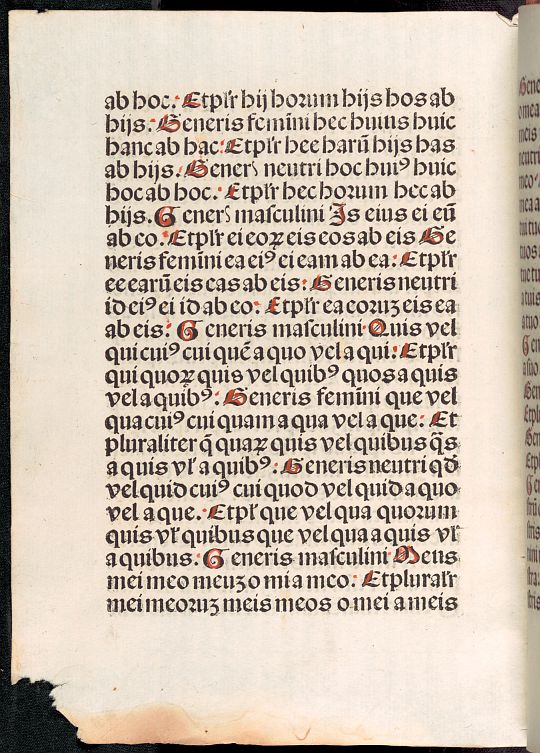 ab hoc. Etplr̄ hij horum hijs hos ab
hijs. Generis femĩni hec huius huic
hanc ab hac. Etplr̄ hee harū hijs has
ab hijs. Gener̄ neutri hoc huiꝰ huic
hoc ab hoc. Etplr̄ hec horum hec ab
hijs. Gener̄ maſculini Is eius ei eū
ab eo. Etplr̄ ei eoꝝ eis eos ab eis Ge
neris femĩni ea eiꝰ ei eam ab ea. Etplr̄
ee earū eis eas ab eis. Generis neutri
id eiꝰ ei id ab eo. Etplr̄ ea eoruʒ eis ea
ab eis. Generis maſculini Quis vel
qui cuiꝰ cui quē a quo vel a qui. Etplr̄
qui quoꝝ quis vel quibꝰ quos a quis
vel a quibꝰ. Generis femĩni que vel
qua cuiꝰ cui quam a qua vel a que. Et
pluraliter q̄ quaꝝ quis vel quibus q̄s
a quis vl̓ a quibꝰ. Generis neutri qd̄
vel quid cuiꝰ cui quod vel quid a quo
vel a que. Etplr̄ que vel qua quorum
quis vl̓ quibus que vel qua a quis vl̓
a quibus. Generis maſculini Meus
mei meo meuʒ o mi a meo. Etpluralr̄
mei meoruʒ meis meos o mei a meis